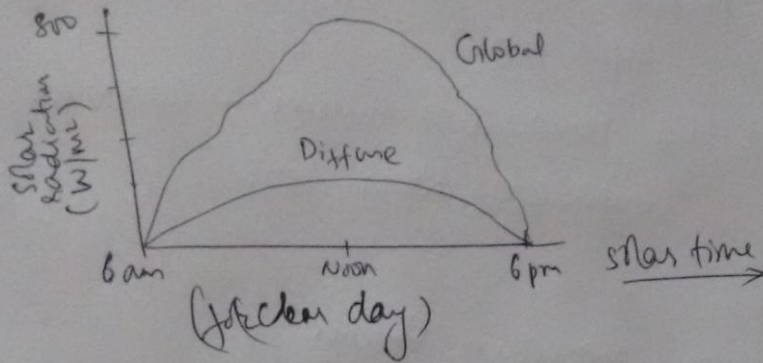 800
Global
Solar
radiation
(W/m²)
Diffuse
6 am
Noon
6 pm
solar time
(for clear day)